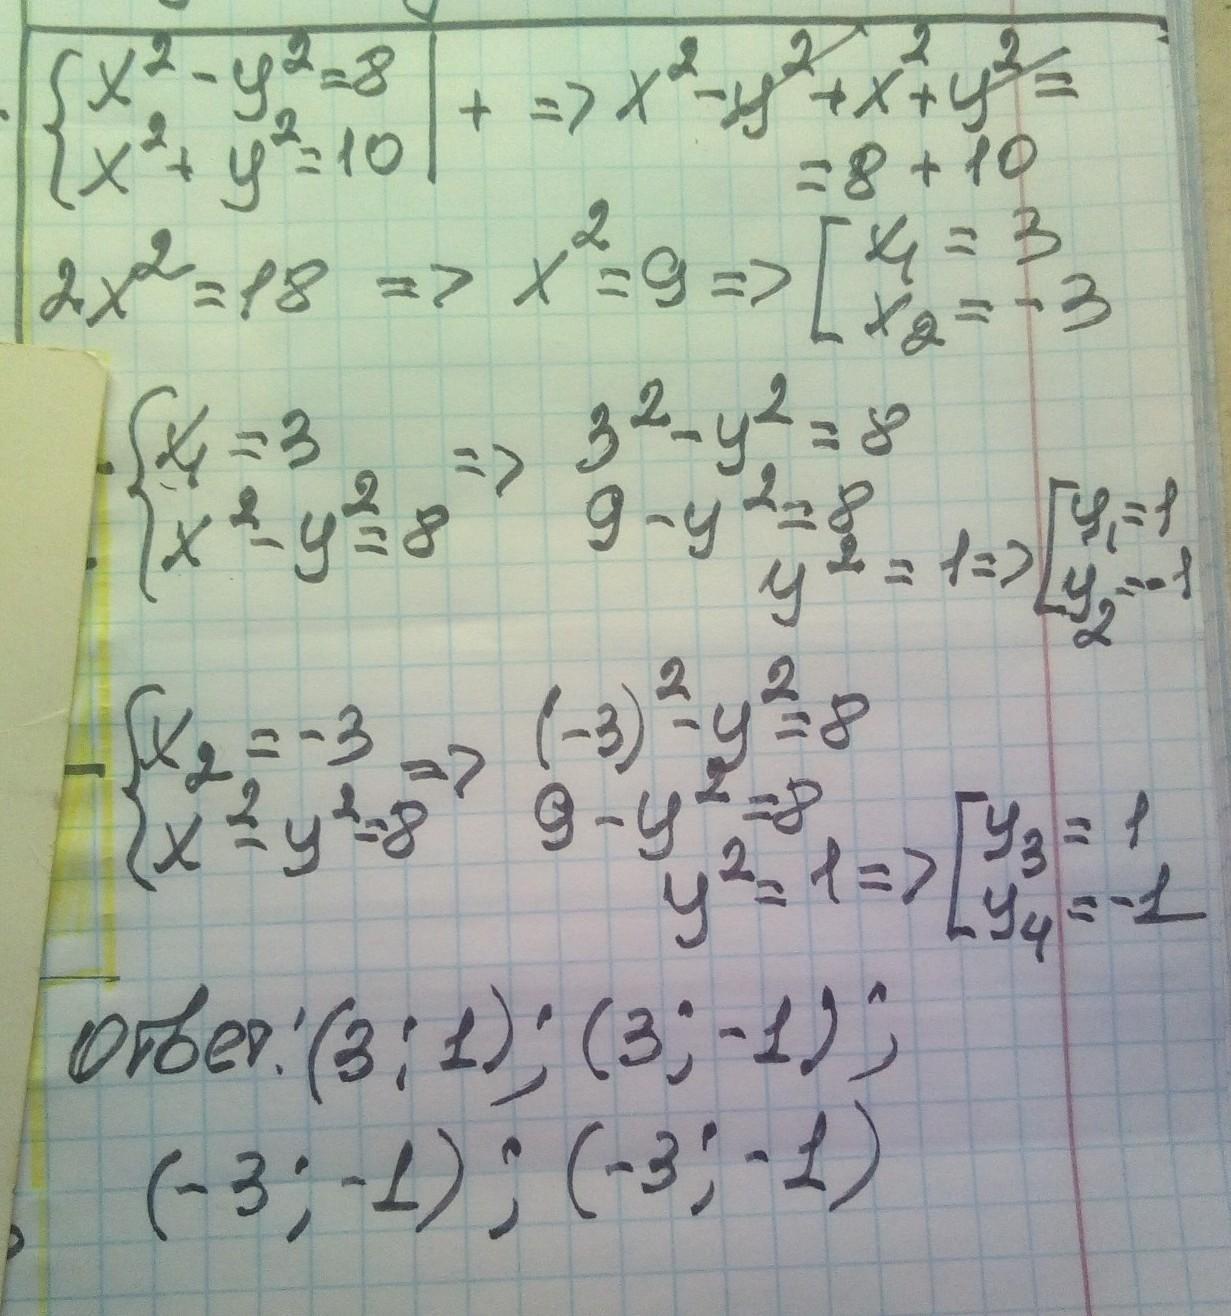 {x² - y² = 8 | + => x² - y² + x² + y² =
{x² + y² = 10 | = 8 + 10
2x² = 18 => x² = 9 => [x₁ = 3
[x₂ = -3
{x₁ = 3 => 3² - y² = 8
{x² - y² = 8 9 - y² = 8
y² = 1 => [y₁ = 1
[y₂ = -1
{x₂ = -3 => (-3)² - y² = 8
{x² - y² = 8 9 - y² = 8
y² = 1 => [y₃ = 1
[y₄ = -1
Ответ: (3; 1); (3; -1);
(-3; -1); (-3; -1)